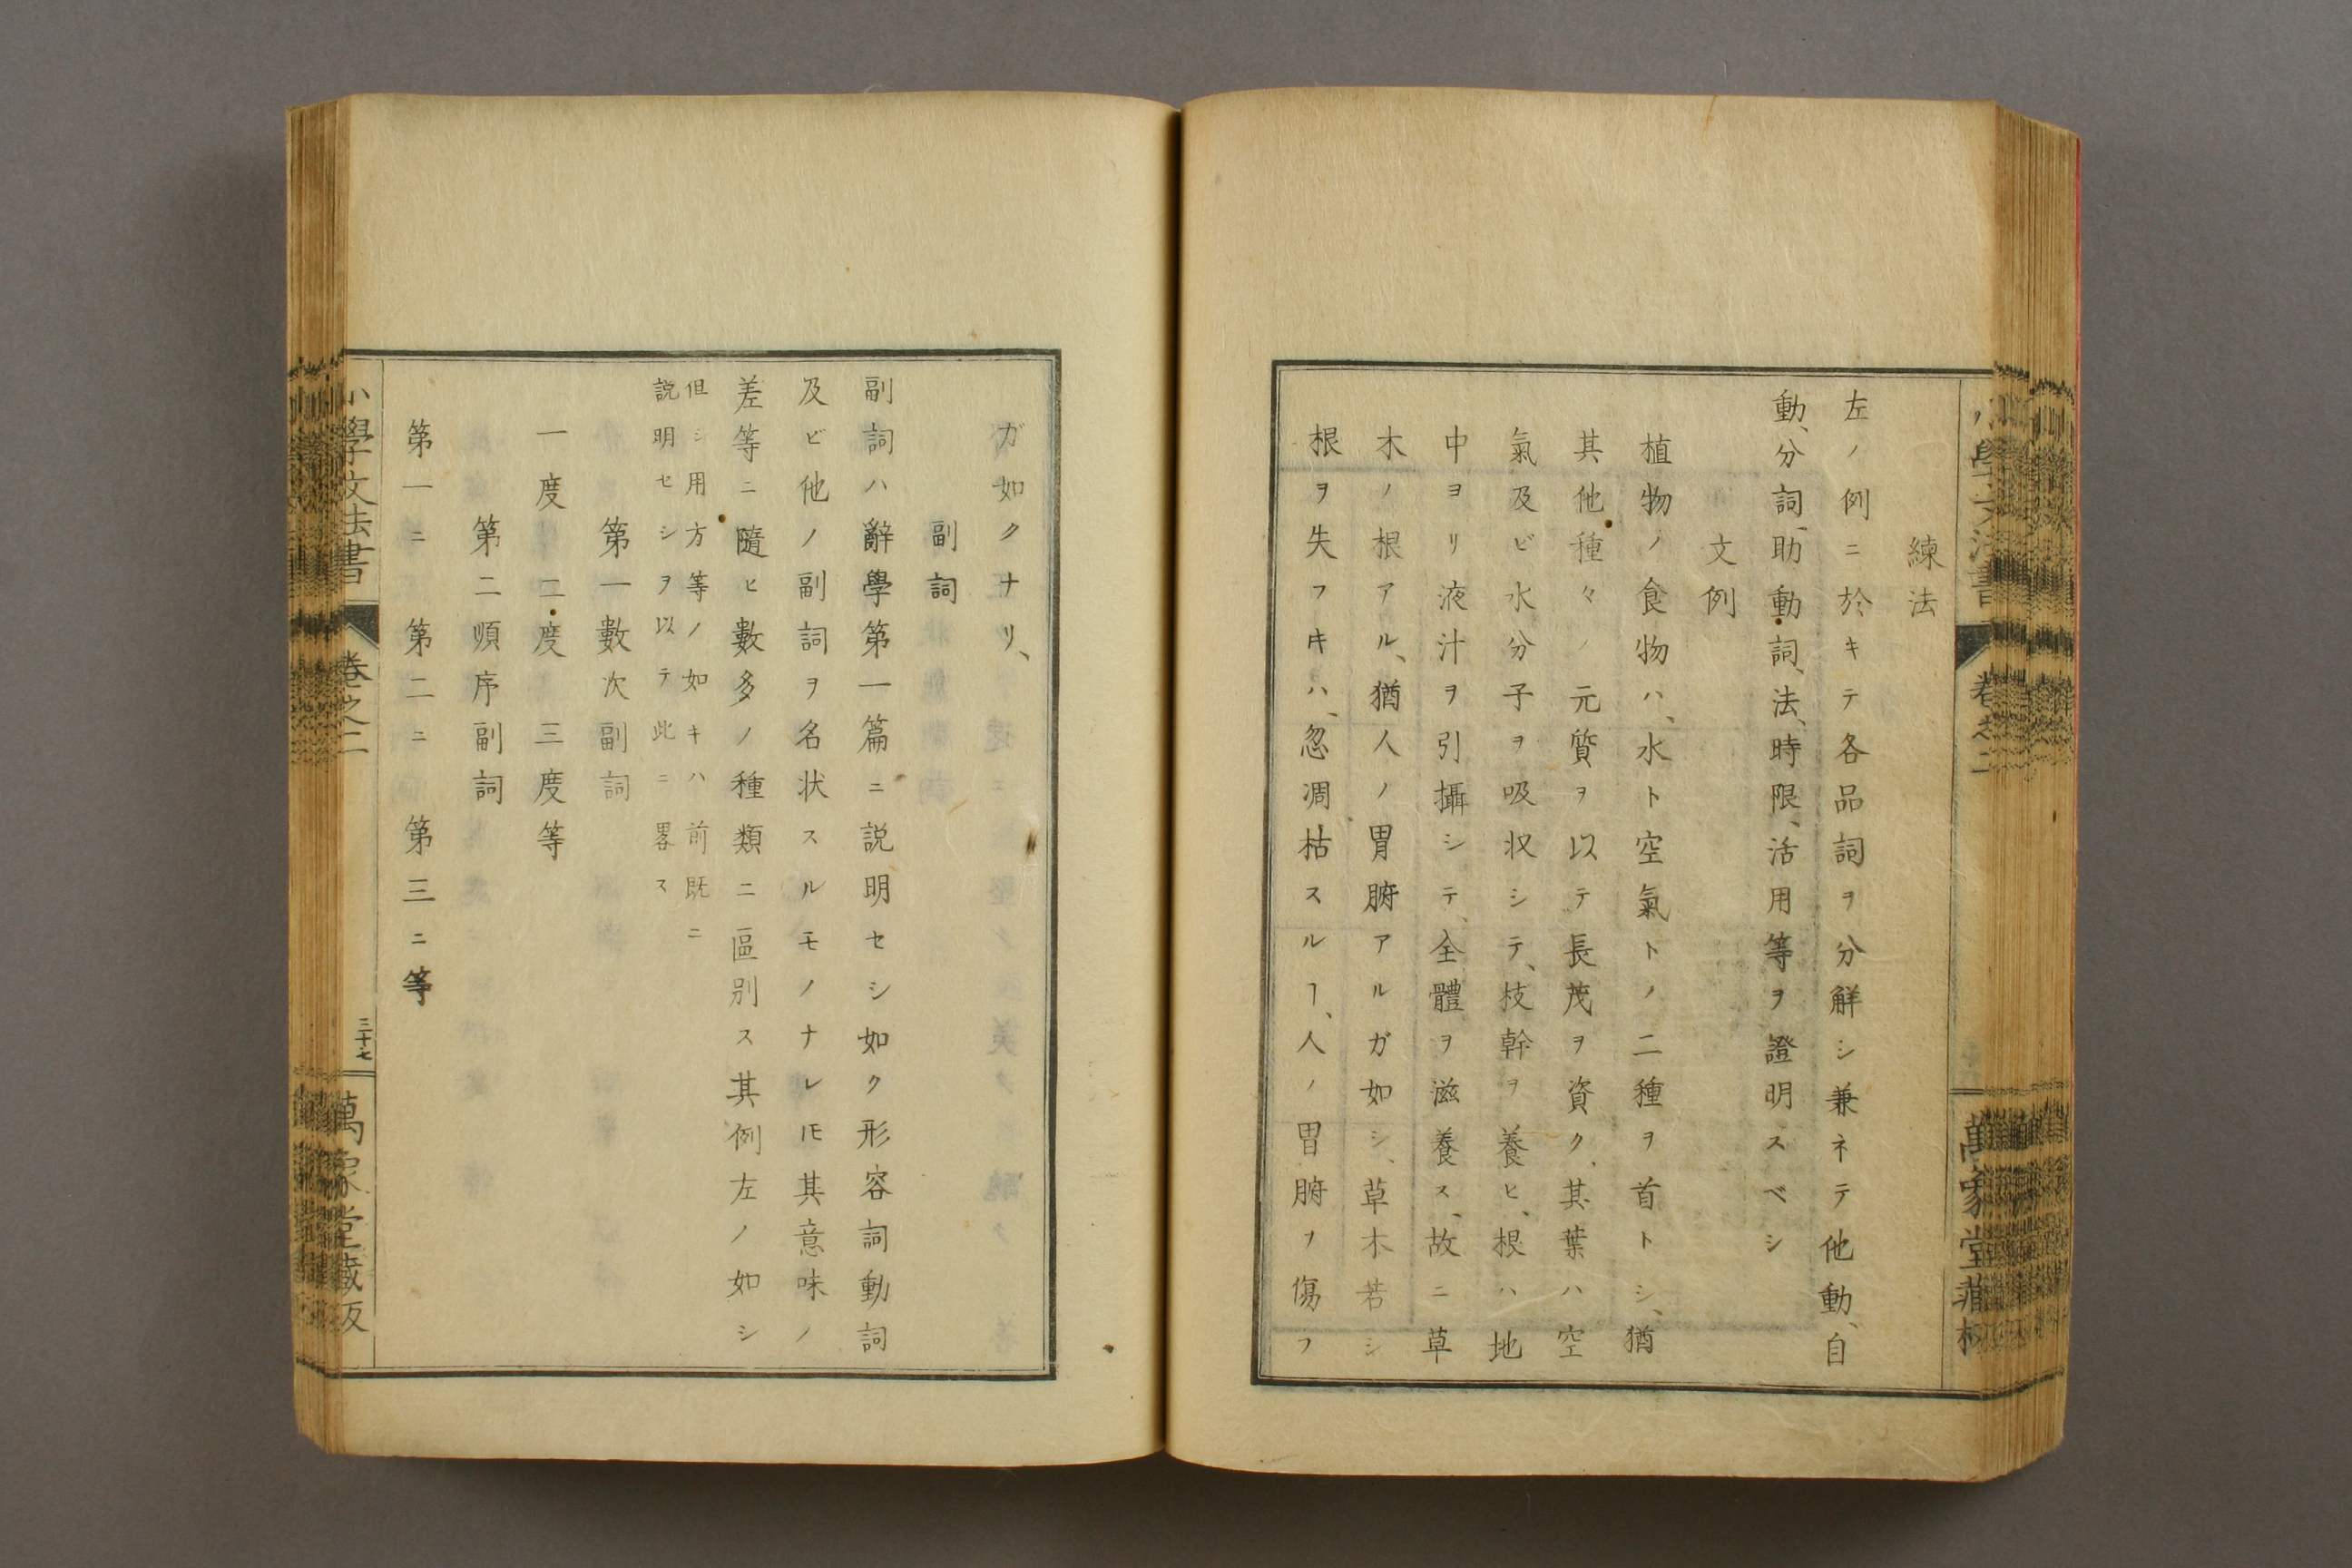 練法
左ノ例ニ於キテ各品詞ヲ分解シ兼ネテ他動、自
動、分詞、助動詞、法、時限、活用等ヲ證明スベシ
文例
植物ノ食物ハ、水ト空氣トノ二種ヲ首トシ、猶
其他種々ノ元質ヲ以テ長茂ヲ資ク、其葉ハ空
氣及ビ水分子ヲ吸収シテ、枝幹ヲ養ヒ、根ハ地
中ヨリ液汁ヲ引攝シテ、全體ヲ滋養ス、故ニ草
木ノ根アル、猶人ノ胃腑アルガ如シ、草木若シ
根ヲ失フキハ、忽凋枯スルヿ、人ノ胃腑ヲ傷フ
ガ如クナリ、
副詞
副詞ハ辭學第一篇ニ説明セシ如ク形容詞動詞
及ビ他ノ副詞ヲ名状スルモノナレ𪜈其意味ノ
差等ニ隨ヒ數多ノ種類ニ區別ス其例左ノ如シ
但シ用方等ノ如キハ前既ニ
説明セシヲ以テ此ニ畧ス
第一數次副詞
一度 二度 三度等
第二順序副詞
第一ニ 第二ニ 第三ニ等
小學文法書 卷之二 三十七 萬象堂藏版